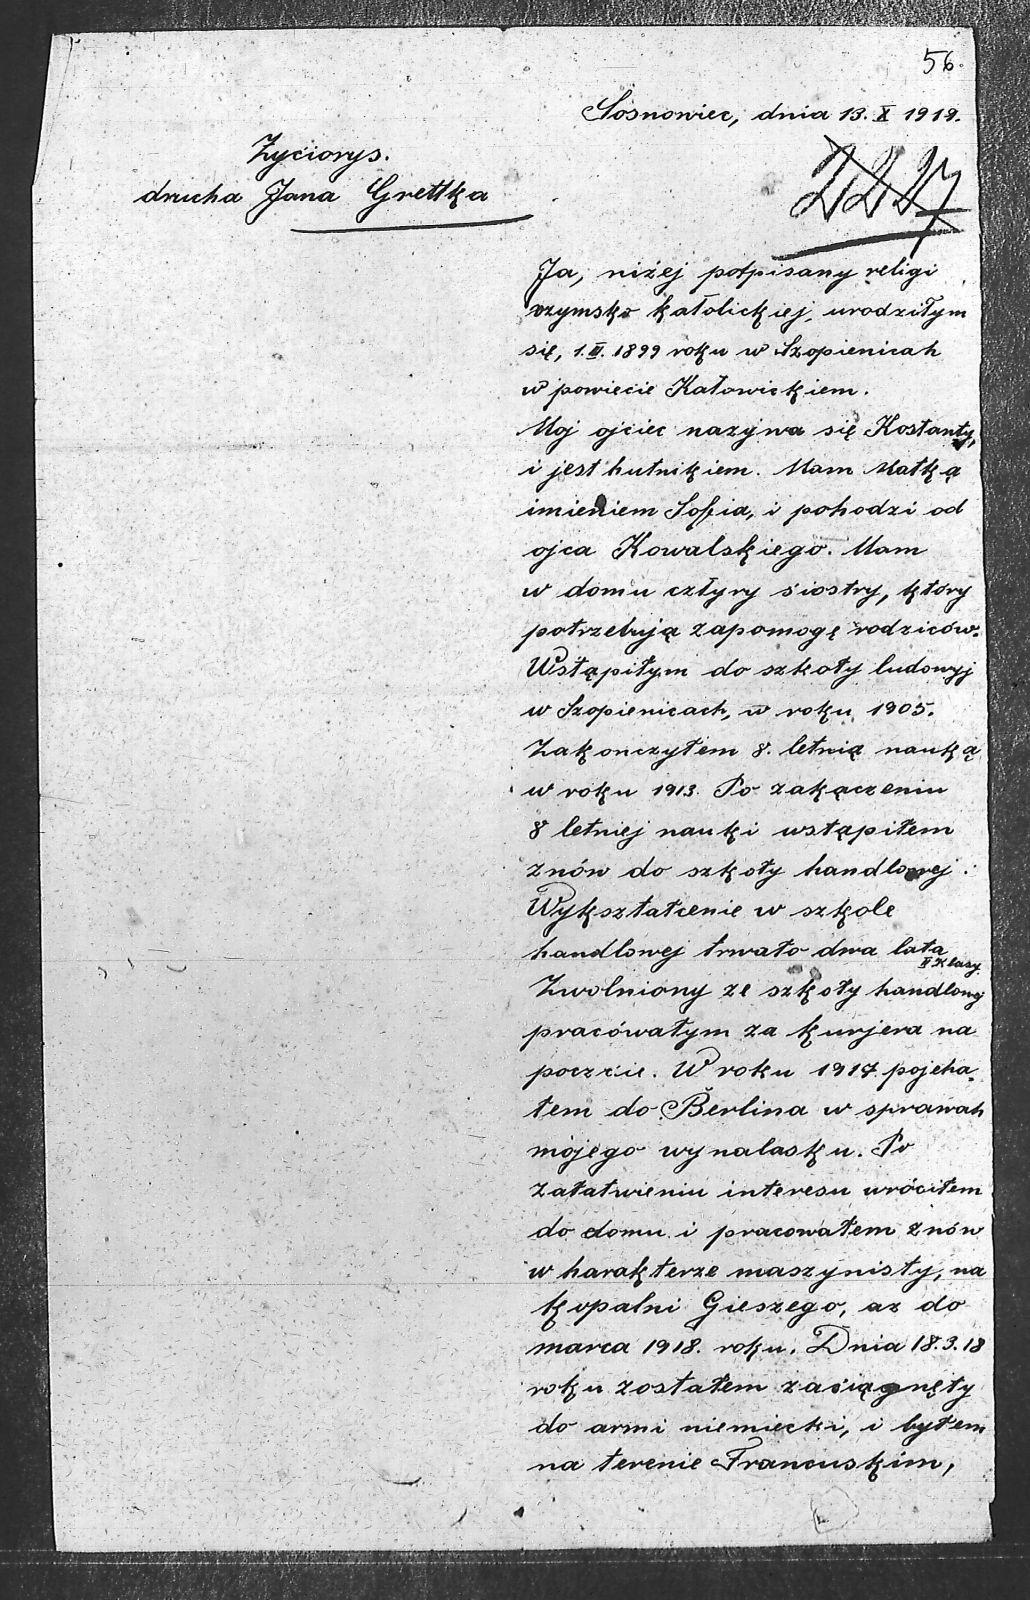 56.
Sosnowiec, dnia 13. X 1919.
Życiorys.
drucha Jana Grettka
2227
Ja, niżej potpisany religi
rzymsko katolickiej, urodziłym
się, 1. III. 1899 roku w Szopienicah
w powiecie Katowickiem.
Moj ojciec nazywa się Kostanty,
i jest hutnikiem. Mam Matką
imieniem Sofia, i pohodzi od
ojca Kowalskiego. Mam
w domu cztyry siostry, który
potrzebują zapomogę rodziców.
Wstąpiłym do szkoły ludowyj
w Szopienicach, w roku 1905.
Zakonczyłem 8. letnią nauką
w roku 1913. Po zakączeniu
8 letniej nauki wstąpiłem
znów do szkoły handlowej.
Wykształcenie w szkole
handlowej trwało dwa lata
II Klasy
Zwolniony ze szkoły handlowej
pracówałym za kurjera na
poczcie. W roku 1917. pojeha-
łem do Berlina w sprawah
mójego wynalasku. Po
załatwieniu interesu wróciłem
do domu i pracowałem znów
w harakterze maszynisty, na
kopalni Gieszego, az do
marca 1918. roku. Dnia 18.3.18
roku zostałem zaciągnęty
do armi niemiecki, i byłem
na terenie Francuskim,